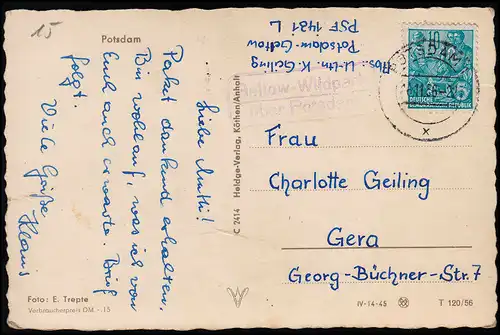 15
Potsdam
Liebe Mutti!
Paket dankend erhalten.
Bin wohlauf, was ich von
Euch auch erwarte. Brief
folgt.
Viele Grüße
Klaus
Foto: E. Trepte
Verbraucherpreis DM -.15
C 2414 Heldge-Verlag, Köthen/Anhalt
Abs.: U-Ltn. K. Geiling
Potsdam-Geltow
PSF 1481
L
Geltow-Wildpark
über Potsdam
POTSDAM
10
DEUTSCHE
DEMOKRATISCHE
REPUBLIK
Frau
Charlotte Geiling
Gera
Georg-Büchner-Str. 7
IV-14-45
T 120/56